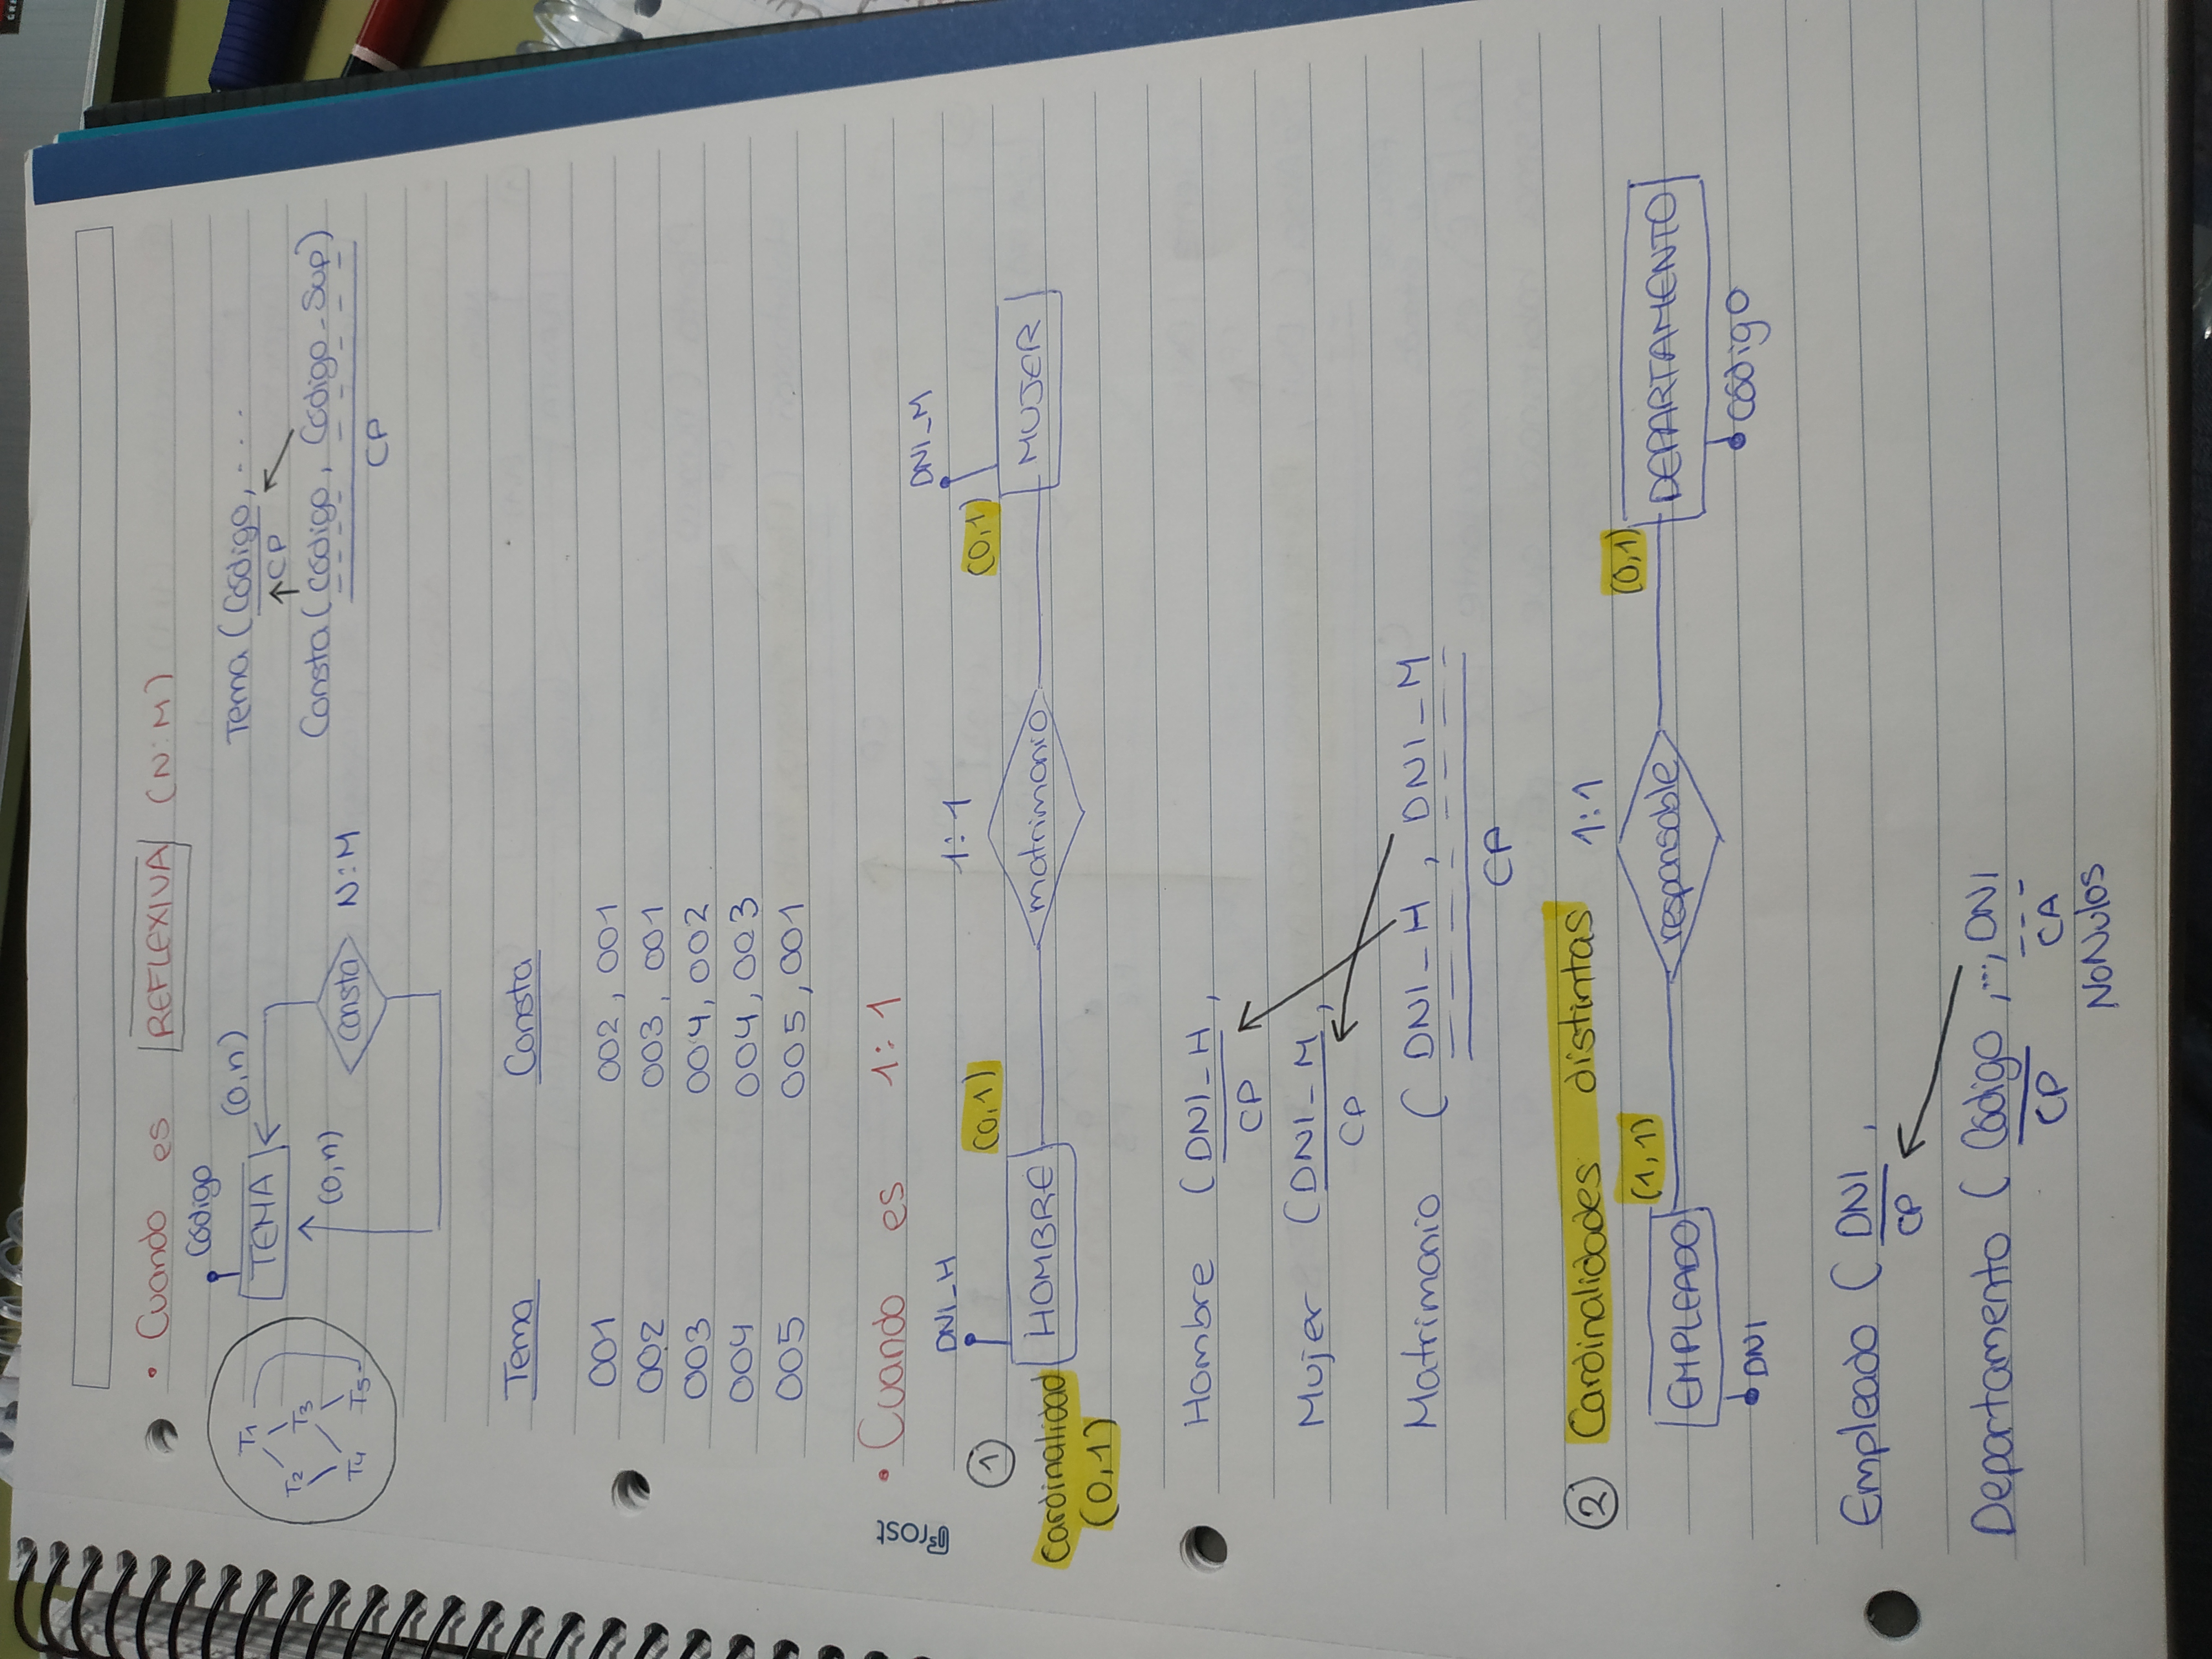 • Cuando es REFLEXIVA (N:M)
Código
T1
T2 T3
T4 T5
TEMA
(0,n)
(0,n)
Consta N:M
Tema (Código, ...
CP
Consta (Código, Código_Sup)
CP
Tema Consta
001 002, 001
002 003, 001
003 004, 002
004 004, 003
005 005, 001
Frost
• Cuando es 1:1
① DNI_H (0,1) 1:1 (0,1) DNI_M
Cardinalidad HOMBRE matrimonio MUJER
(0,1)
Hombre (DNI_H,
CP
Mujer (DNI_M,
CP
Matrimonio (DNI_H, DNI_M
CP
② Cardinalidades distintas 1:1
(1,1) (0,1)
EMPLEADO responsable DEPARTAMENTO
DNI Código
Empleado (DNI,
CP
Departamento (Código,..., DNI
CP CA
NoNulos